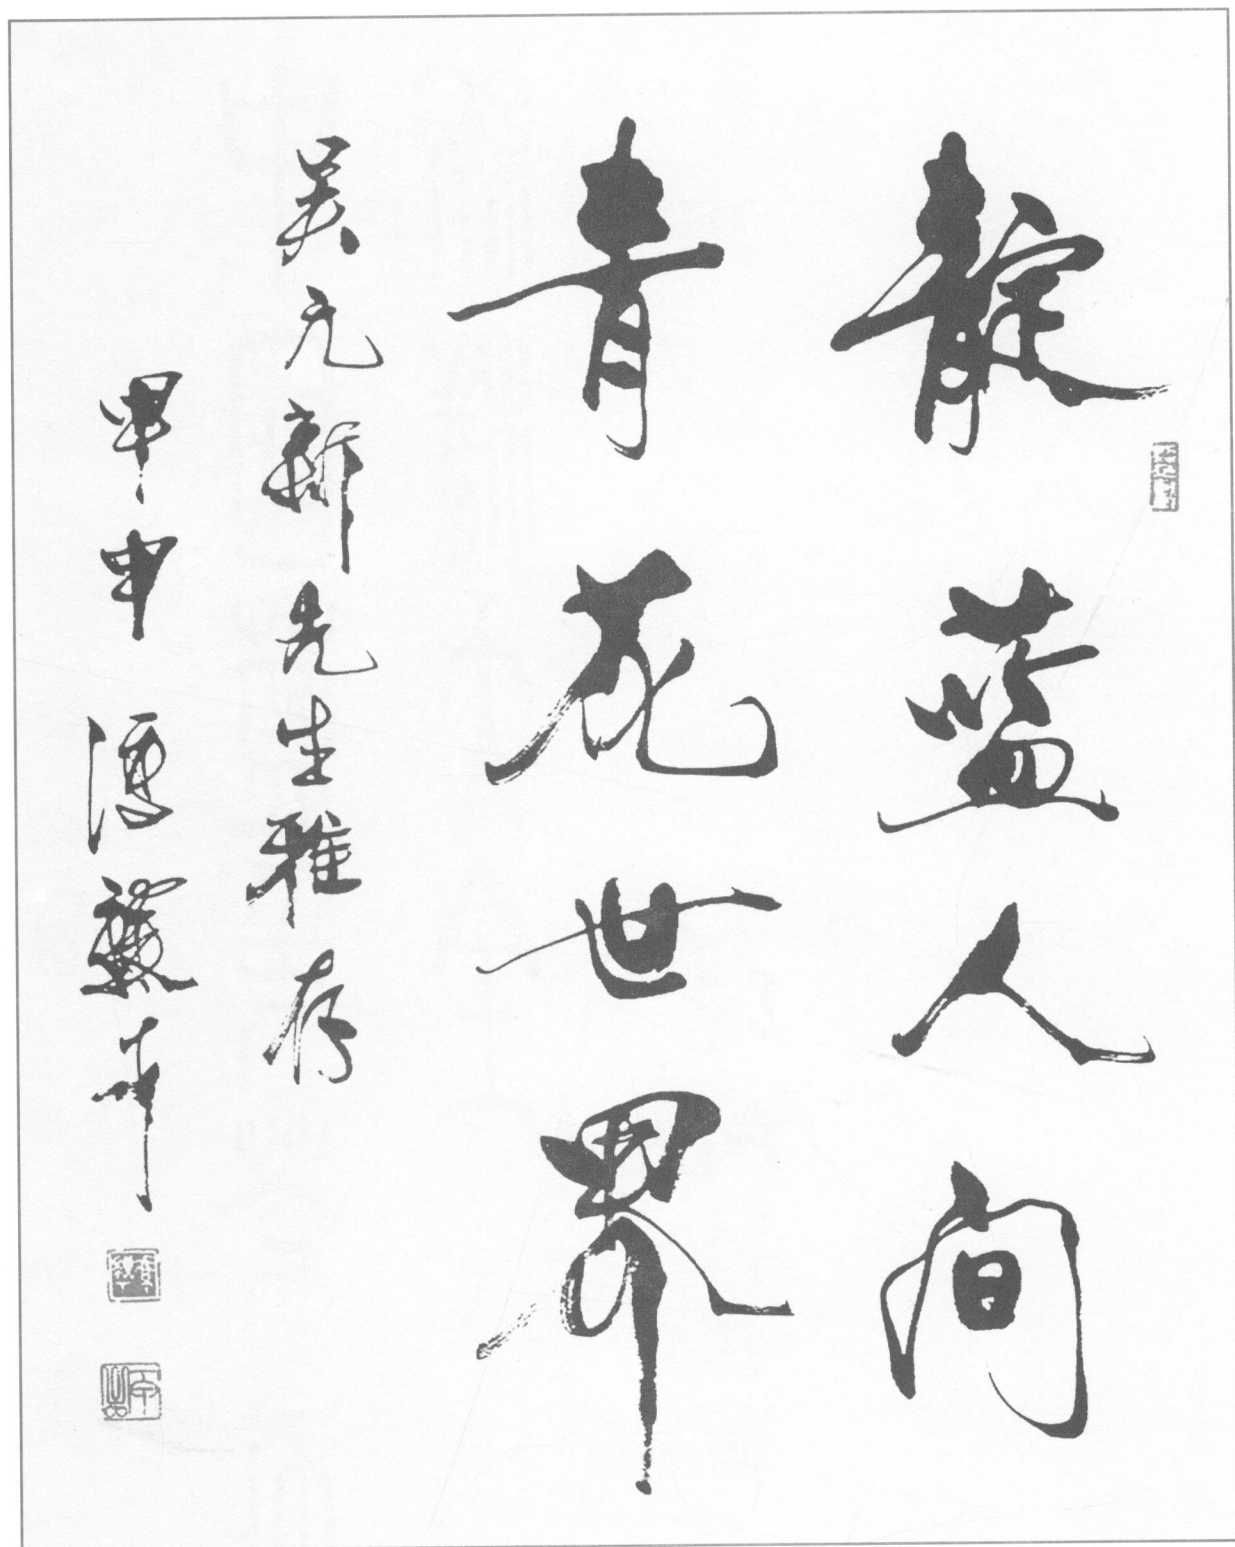 靛蓝人间
青花世界
吴元新先生雅存
甲申 馮驥才